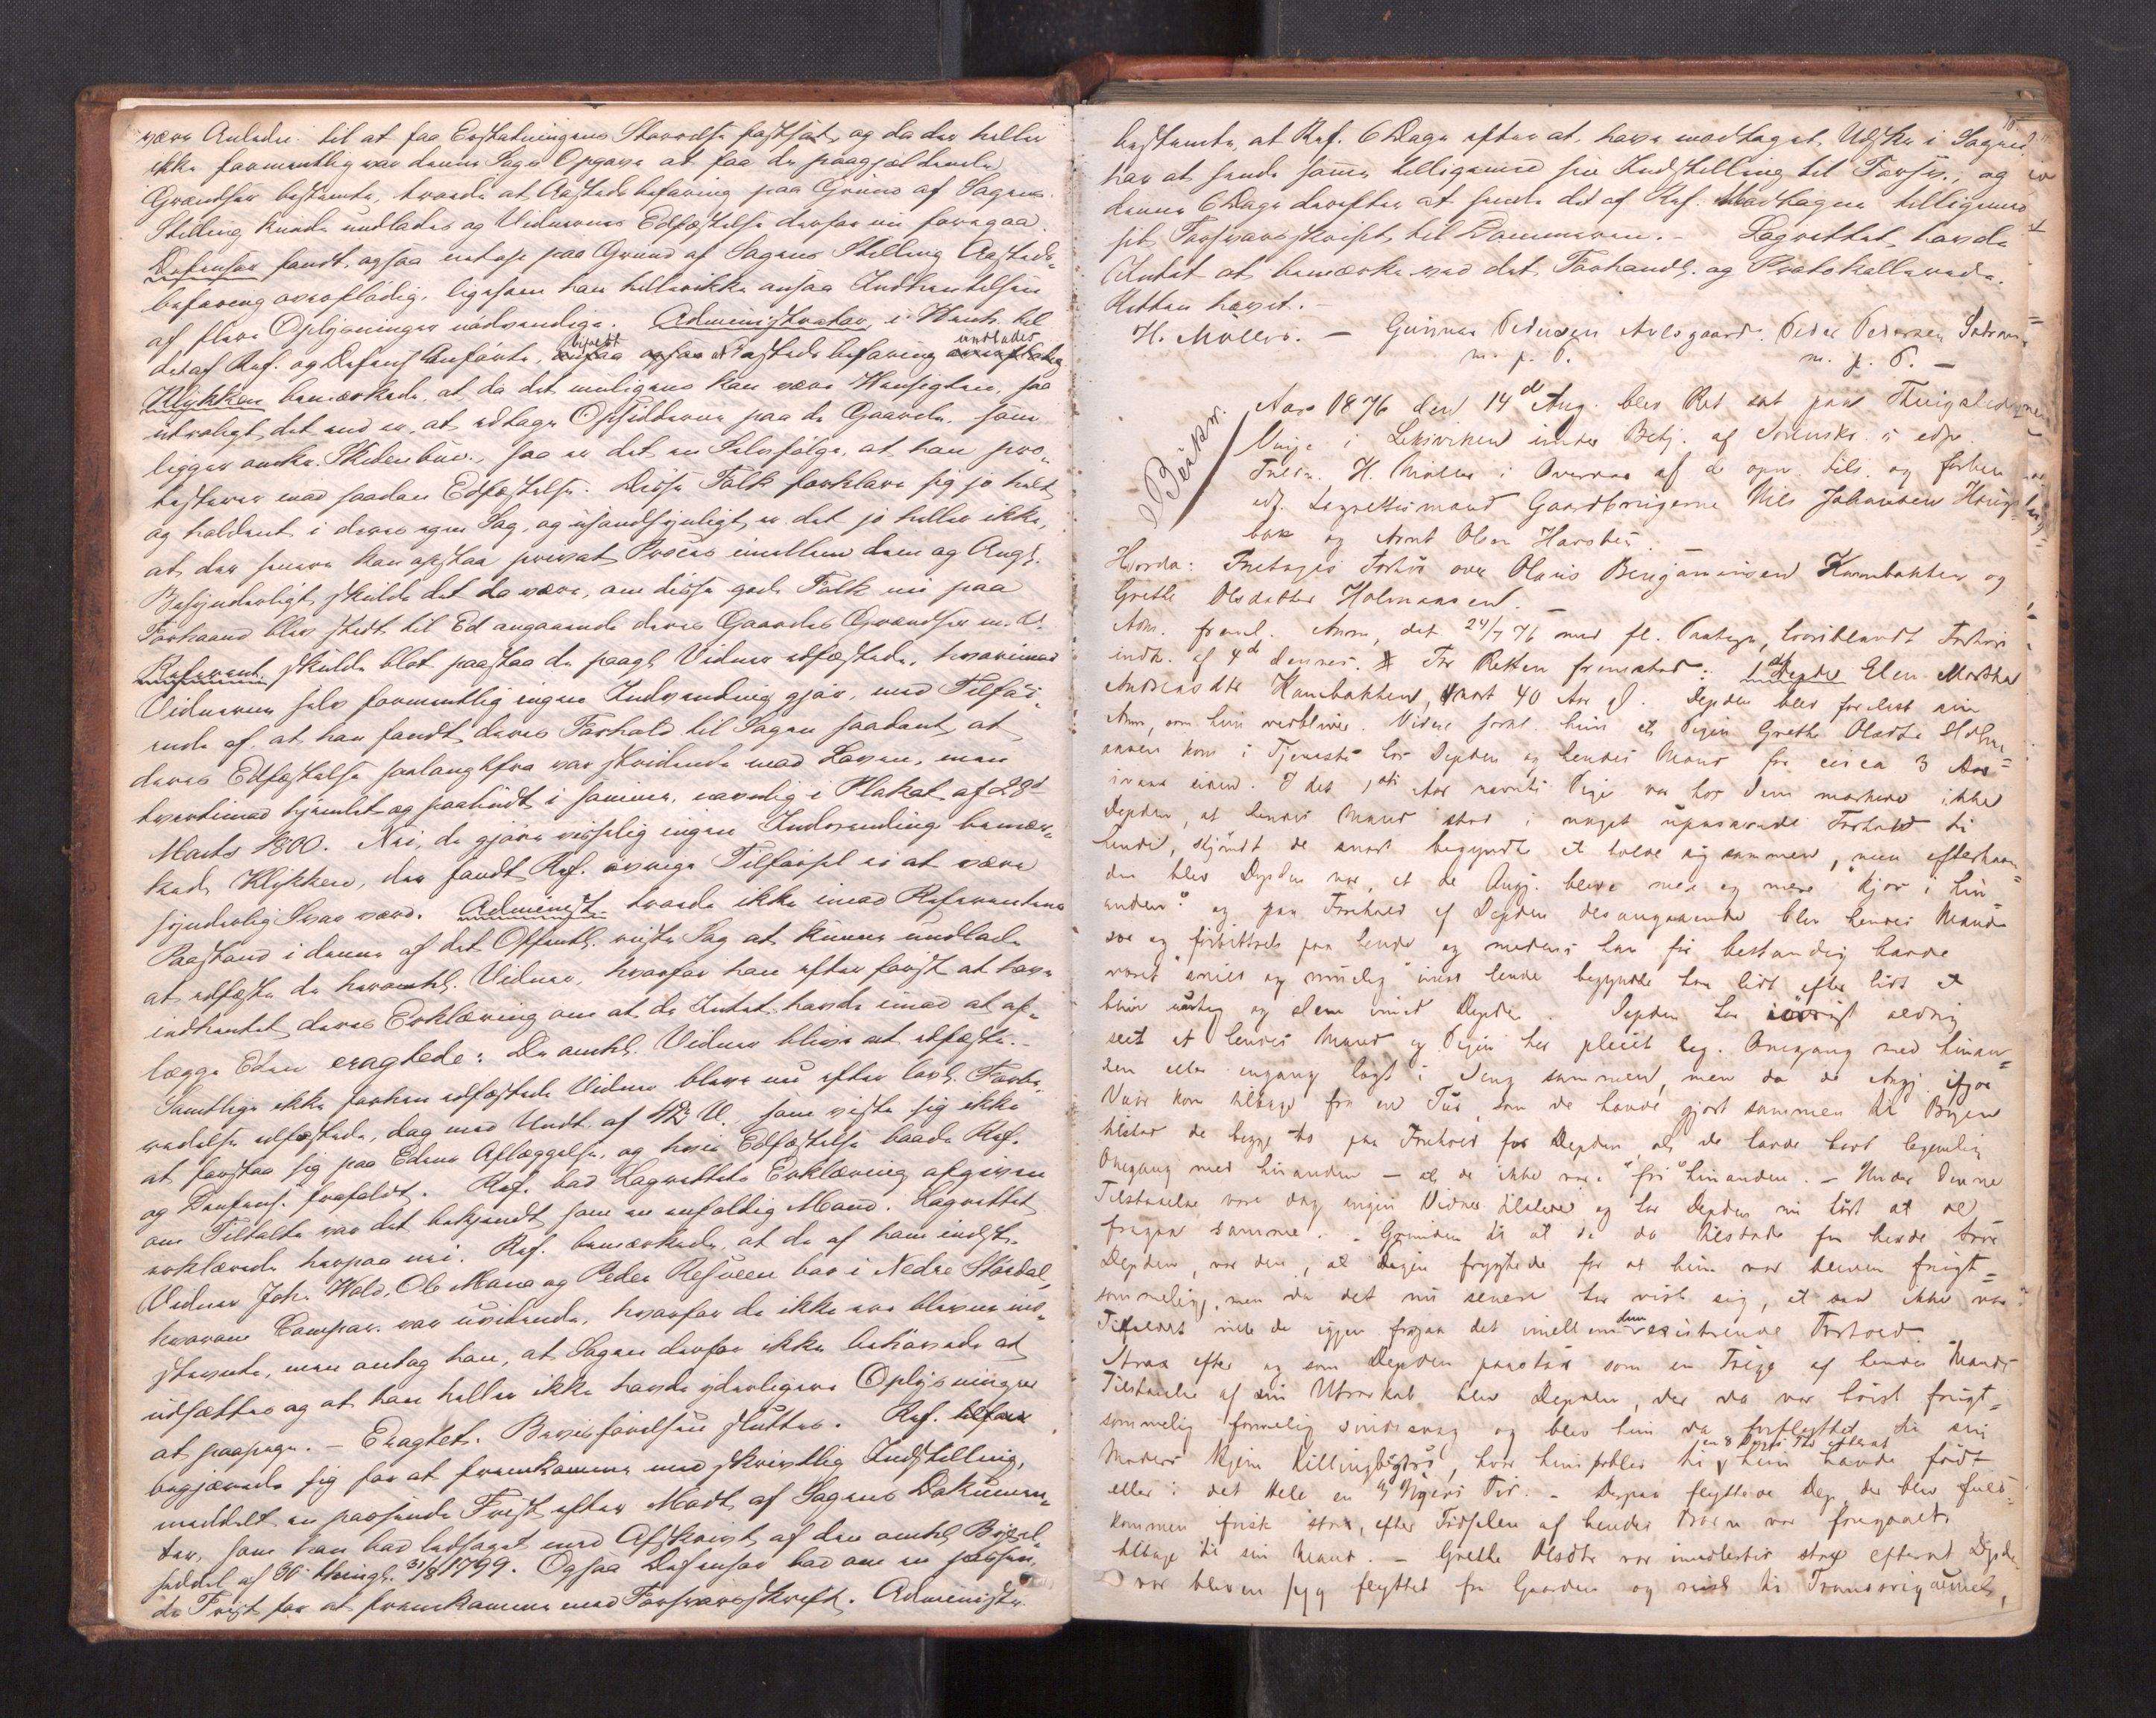 være Anledn. til at faa Erstatningens Størrelse fastsat, og da der heller
ikke formentlig var denne Sags Opgave at faa de paagjældende
Grændser bestemte, troede at Aastedsbefaring paa Grund af Sagens
Stilling kunde undlades og Vidnernes Edfæstelse derfor nu foregaa.
Defensor fandt ogsaa netop paa Grund af Sagens Stilling Aasteds-
befaring overflødig, ligesom han heller ikke ansaa Indhentelsen
af flere Oplysninger nødvendige. Administrator, i Henh. til
det af Ref. og Defens. Anførte, at Aastedsbefaring undlades
Klykken bemærkede, at da det muligens kan være Hensigten, saa
utroligt det end er, at edtage Opsidderne paa de Gaarde, som
ligger omkr. Skidenbuv., saa er det en Selvfølge, at han pro-
testerer mod saadan Edfæstelse. Disse Folk forklarer sig jo helt
og holdent i deres egen Sag, og usandsynligt er det jo heller ikke,
at der senere kan opstaa privat Proces imellem dem og Angj.
Besynderligt skulde det da være, om disse gode Folk nu paa
Forhaand blev stedt til Ed angaaende deres Gaardes Grændser m. V.
Referent. skulde blot paastaa de paagj. Vidner edfæstede, hvorimod
Vidnerne selv formentlig ingen Indvending gjør, med Tilføi-
ende af, at han fandt deres Forhold til Sagen saadant, at
deres Edfæstelse saalangtfra var stridende mod Loven, men
tvertimod hjemlet og paabudt i samme, navnlig i Plakat af 28d
Marts 1800. Nei, de gjøre visselig ingen Indvending bemær-
kede Klykken, der fandt Ref. øvrige Tilførsel ei at være
synderlig Svar værd. Administ. troede ikke imod Referentens
Paastand i denne af det Offentl. reiste Sag at kunne undlade
at edfæste de heromhl. Vidner, hvorfor han efter først at have
indhentet deres Erklæring om at de Intet havde imod at af-
lægge Eden eragtede: De omhl. Vidner blive at edfæste. -
Samtlige ikke forhen edfæstede Vidner bleve nu efter lovl. Forbe-
redelse edfæstede, dog med Undt. af 42 V., som viste sig ikke
at forstaa sig paa Edens Aflæggelse, og hvis Edfæstelse baade Ref.
og Defens. frafaldt. Ref. bad Lagrettets Erklæring afgiven
om Tiltalte var det bekjendt som en enfoldig Mand. Lagrettet
erklærede herpaa nei. Ref. bemærkede, at de af ham indst.
Vidner Joh. Wold, Ole Mona og Peder Refseen bor i Nedre Stördal,
hvorom Compar. var uvidende, hvorfor de ikke ere blevne ind-
stevnte, men antog han, at Sagen derfor ikke behøvede at
udsættes og at han heller ikke havde yderligere Oplysninger
at paapege. - Eragtet. Bevisførelsen sluttes. Ref.
begjærede sig for at fremkomme med skriftlig Indstilling,
meddelt en passende Frist efter Modt. af Sagens Dokumen-
ter, som han bad ledsaget med Afskrift af den omhl. Bygsel-
seddel af 31/8 1799. Ogsaa Defensor bad om en passen-
de Frist for at fremkomme med Forsvarsskrift. Administr.
bestemte, at Ref. 6 Dage efter at have modtaget Udskr. i Sagen
har at sende samme tilligemed sin Indstilling til Forsv., og
denne 6 Dage derefter at sende det af Ref. Modtagne tilligemed
sit Forsvarsskrift til Dommeren. - Lagrettet havde
Intet at bemærke ved det Forhandl. og Protokollerede.
Retten hævet. -
H. Möller. - Gunnar Pedersen Avlsgaard. Peder Pedersen
m. p. P. m. p. P. -
Aar 1876 den 14d Aug. blev Ret sat paa Thinglednene
Vinge i Leksviken under Betj. af Sorenskr. s edsv.
Fuldm. H. Möller i Overvær af de opn. tils. og forhen
edf. Lagrettesmænd Gaardbrugerne Nils Johannesen Haug-
bak og Arnt Olsen Harsten.
Hvorda: Foretoges Forhör over Olaus Benjaminsen Kambakken og
Grethe Olsdatter Holmaasen. -
Adm. freml. Anm. det. 24/7 76 med fl. Paategn., hvoriblandt Forhörs
indk. af 4d dennes. For Retten fremstod: 1ste Depdte Elen Martha
Andreasdtr Kambakken, snart 40 Aar gl. Depden blev forelæst sin
Anm., som hun vedblivr. Vidne forkl. hun at Pigen Grethe Olsdtr Holm-
aasen kom i Tjeneste hos Depden og hendes Mand for circa 3 Aar
siden. I det 1ste Aar nævnte Pige var hos dem mærkede ikke
Depden, at hendes Mand stod i noget upassende Forhold til
hende, skjöndt de snart begyndte at holde sig sammen, men efterhaan-
den blev Depden var, at de Angj. bleve mer og mere "kjær i hin-
anden" og paa Forehold af Depden desangaaende blev hendes Mand
vre og forbittret paa hende og medens han för bestandig havde
været "snild og rimelig" imod hende begyndte han lidt efter lidt at
blive urimelig og slem imod Depden. Depden har iøvrigt aldrig
seet at hendes Mand og Pigen har pleiet leg. Omgang med hinan-
den eller engang lagt i Seng sammen, men da de Angj. ifjor
Vaar kom tilbage fra en Tur, som de havde gjort sammen til Byen
tilstod de begge To paa Forehold for Depden, at de havde havt legemlig
Omgang med hinanden - at de ikke vare "fri" hinanden. - Under denne
Tilstaaelse vare dog ingen Vidner tilstede og har Depden nu hört at de
fragaa samme. - Grunden til at de da tilstode for hende tror
Depden, var den, at Pigen frygtede for at hun var bleven frugt-
sommelig, men da det nu senere har vist sig, at saa ikke var
Tilfældet ville de igjen fragaa det imellem dem existerende Forhold.
Strax efter og som Depden paastaar som en Fölge af hendes Mands
Tilstaaelse af sin Utroskab blev Depden, der da var höist frugt-
sommelig formelig sindssvag og blev hun da forflyttet til sin
Moders Hjem Killingbergtrö, hvor hun forblev til en 8 Dages Tid efterat hun havde födt
eller i det Hele en 3 Ugers Tid. - Derpaa flyttede Dep. der blev fuld-
kommen frisk strax, efter Födselen af hendes Barn var foregaaet,
tilbage til sin Mand. - Grethe Olsdtr var imidlertid strax efterat Depden
var bleven syg flyttet fra Gaarden og reist til